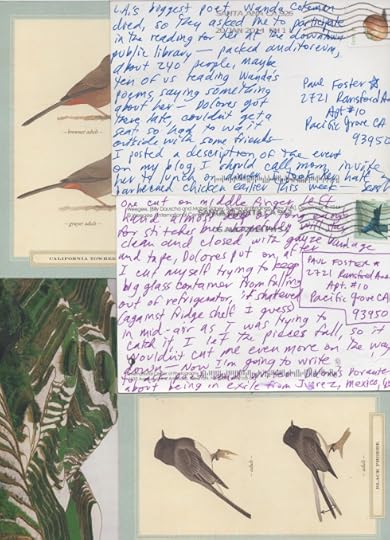 LA's biggest poet, Wanda Coleman
died, so they asked me to participate
in the reading for her at the downtown
public library — packed auditorium,
about 240 people, maybe
10 of us reading Wanda's
poems, saying something
about her — Dolores got
there late, couldn't get a
seat so had to wait
outside with some friends
I posted a description of the event
on my blog, I should call mom, invite
her to lunch
barbecued chicken earlier this week —
Paul Foster
2721 Ransford Ave
Apt. #10
Pacific Grove, CA
93950
One cut on middle finger left
hand almost
for stitches but
clean and closed with gauze bandage
and tape, Dolores put on, all
I cut myself trying to keep
big glass container from falling
out of refrigerator, it shattered
(against fridge shelf I guess)
in mid-air as I was trying to
catch it. I let the pieces fall, so it
wouldn't cut me even more on the way
down. Now I'm going to write
about being in exile from Juarez, Mexico,
PAUL FOSTER
2721 Ransford Ave.
Apt. #10
Pacific Grove
93950
– browner adult –
– grayer adult –
CALIFORNIA TOWHEE
– adult –
– adult –
BLACK PHOEBE